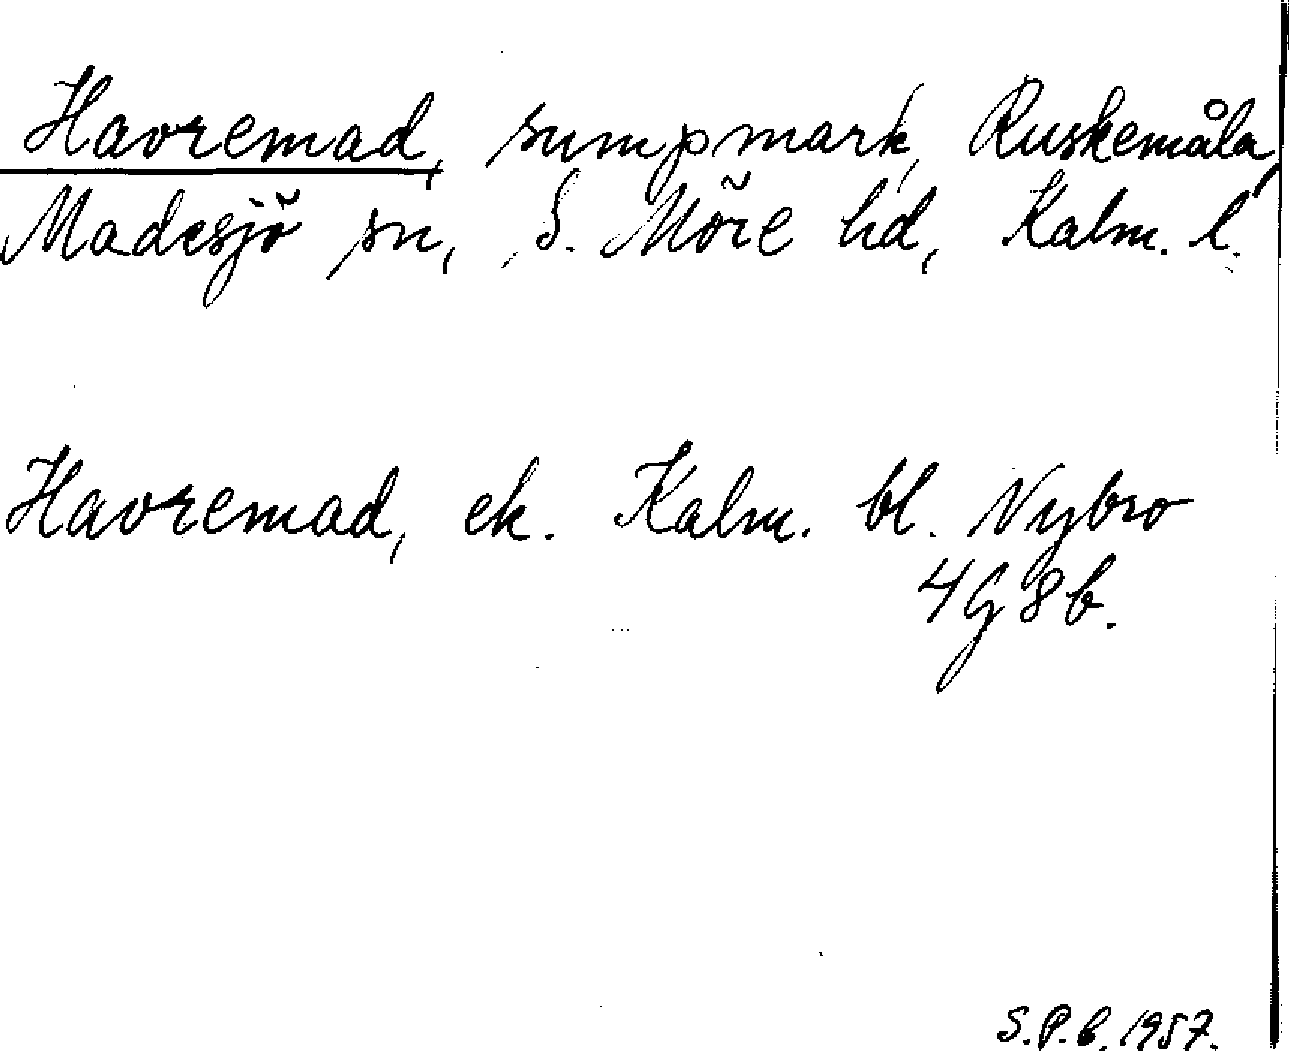 Havremad, sumpmark, Ruskemåla,
Madesjö sn, S. Möre hd, Kalm. l.
Havremad, ek. Kalm. bl. Nybro
4G 8b.
S.P.B. 1957.